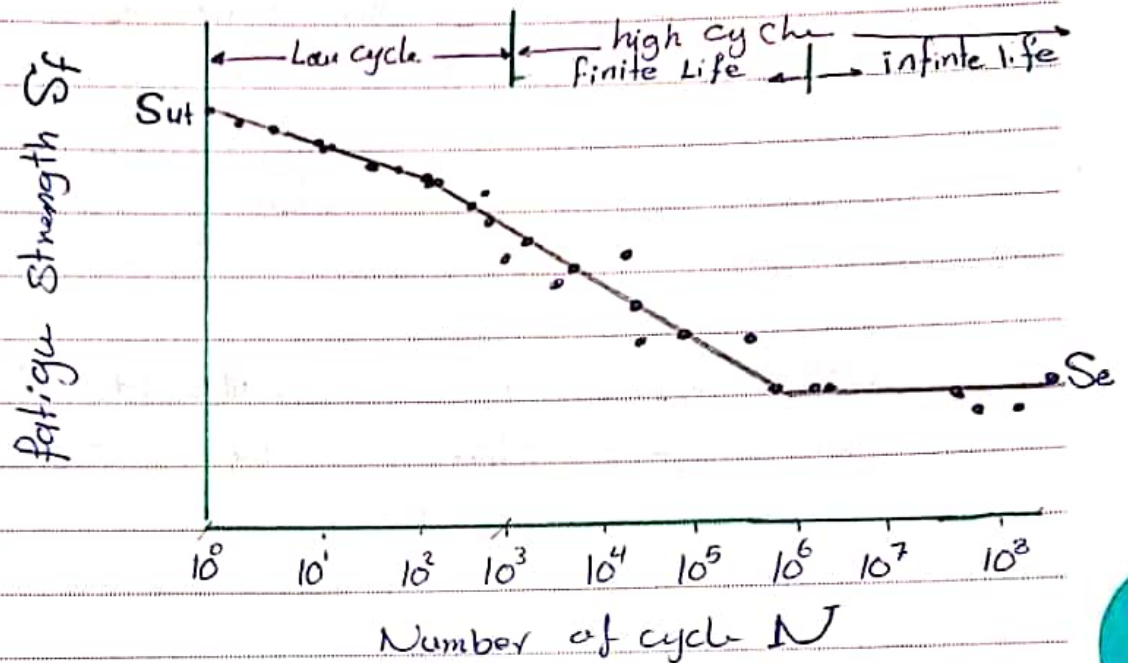 Low cycle
high cycle
finite Life
infinte life
Sut
fatigu strength Sf
Se
10⁰ 10¹ 10² 10³ 10⁴ 10⁵ 10⁶ 10⁷ 10⁸
Number of cycle N